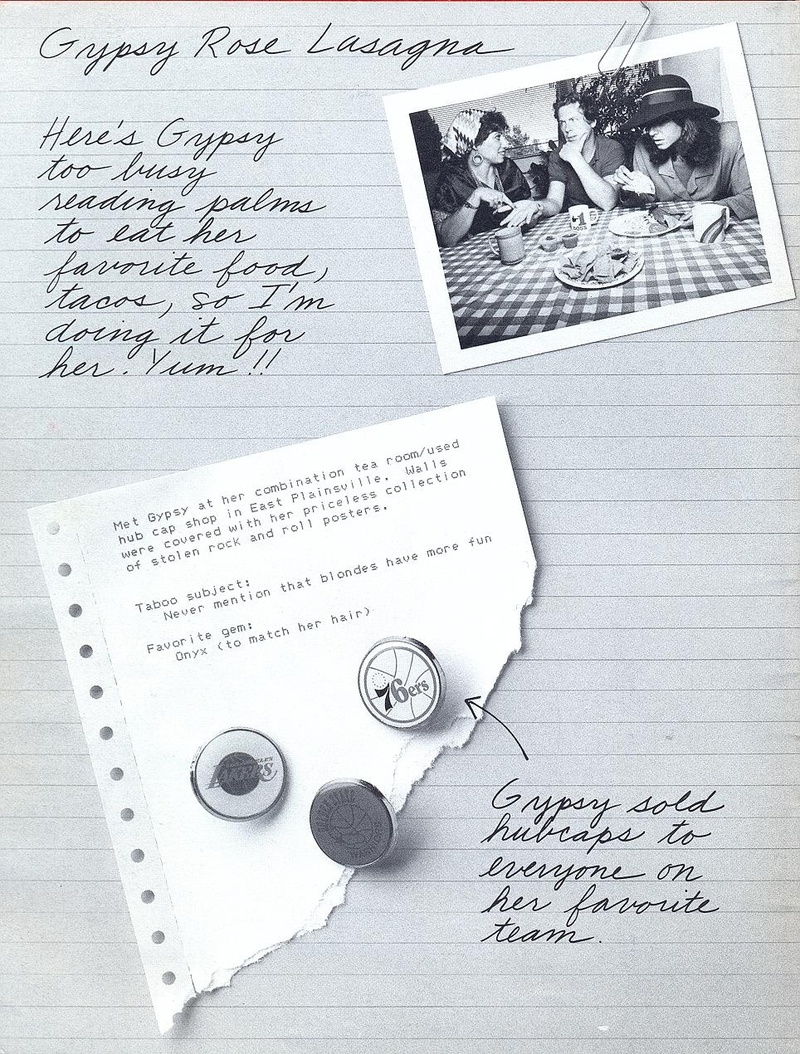 Gypsy Rose Lasagna
Here's Gypsy
too busy
reading palms
to eat her
favorite food,
tacos, so I'm
doing it for
her. Yum!!
#1
BOSS
Met Gypsy at her combination tea room/used
hub cap shop in East Plainsville. Walls
were covered with her priceless collection
of stolen rock and roll posters.
Taboo subject:
Never mention that blondes have more fun
Favorite gem:
Onyx (to match her hair)
76ers
LOS ANGELES
LAKERS
GOLDEN STATE
WARRIORS
Gypsy sold
hubcaps to
everyone on
her favorite
team.